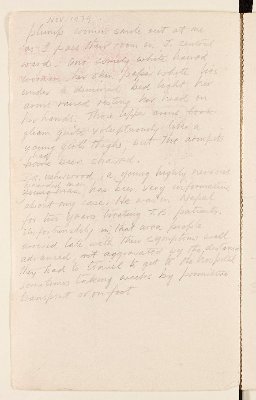 Nov 1979.
plump women smile out at me
as I pass their room in T. central
ward. One smiling white haired
her skin paper white lies
under a dimmed bed light her
arms raised resting her head on
her hands. Those upper arms
gleam quite voluptuously like a
young girls thighs but the armpits
had been shaved.
Dr. Usherwood, a young highly nervous
has been very informative
about my case. He was in Nepal
for two years treating T.B. patients.
Unfortunately in that area people
arrived late with their symptoms well
advanced, not aggravated by the distance
they had to travel to get to the hospital
sometimes taking weeks by primitive
transport or on foot